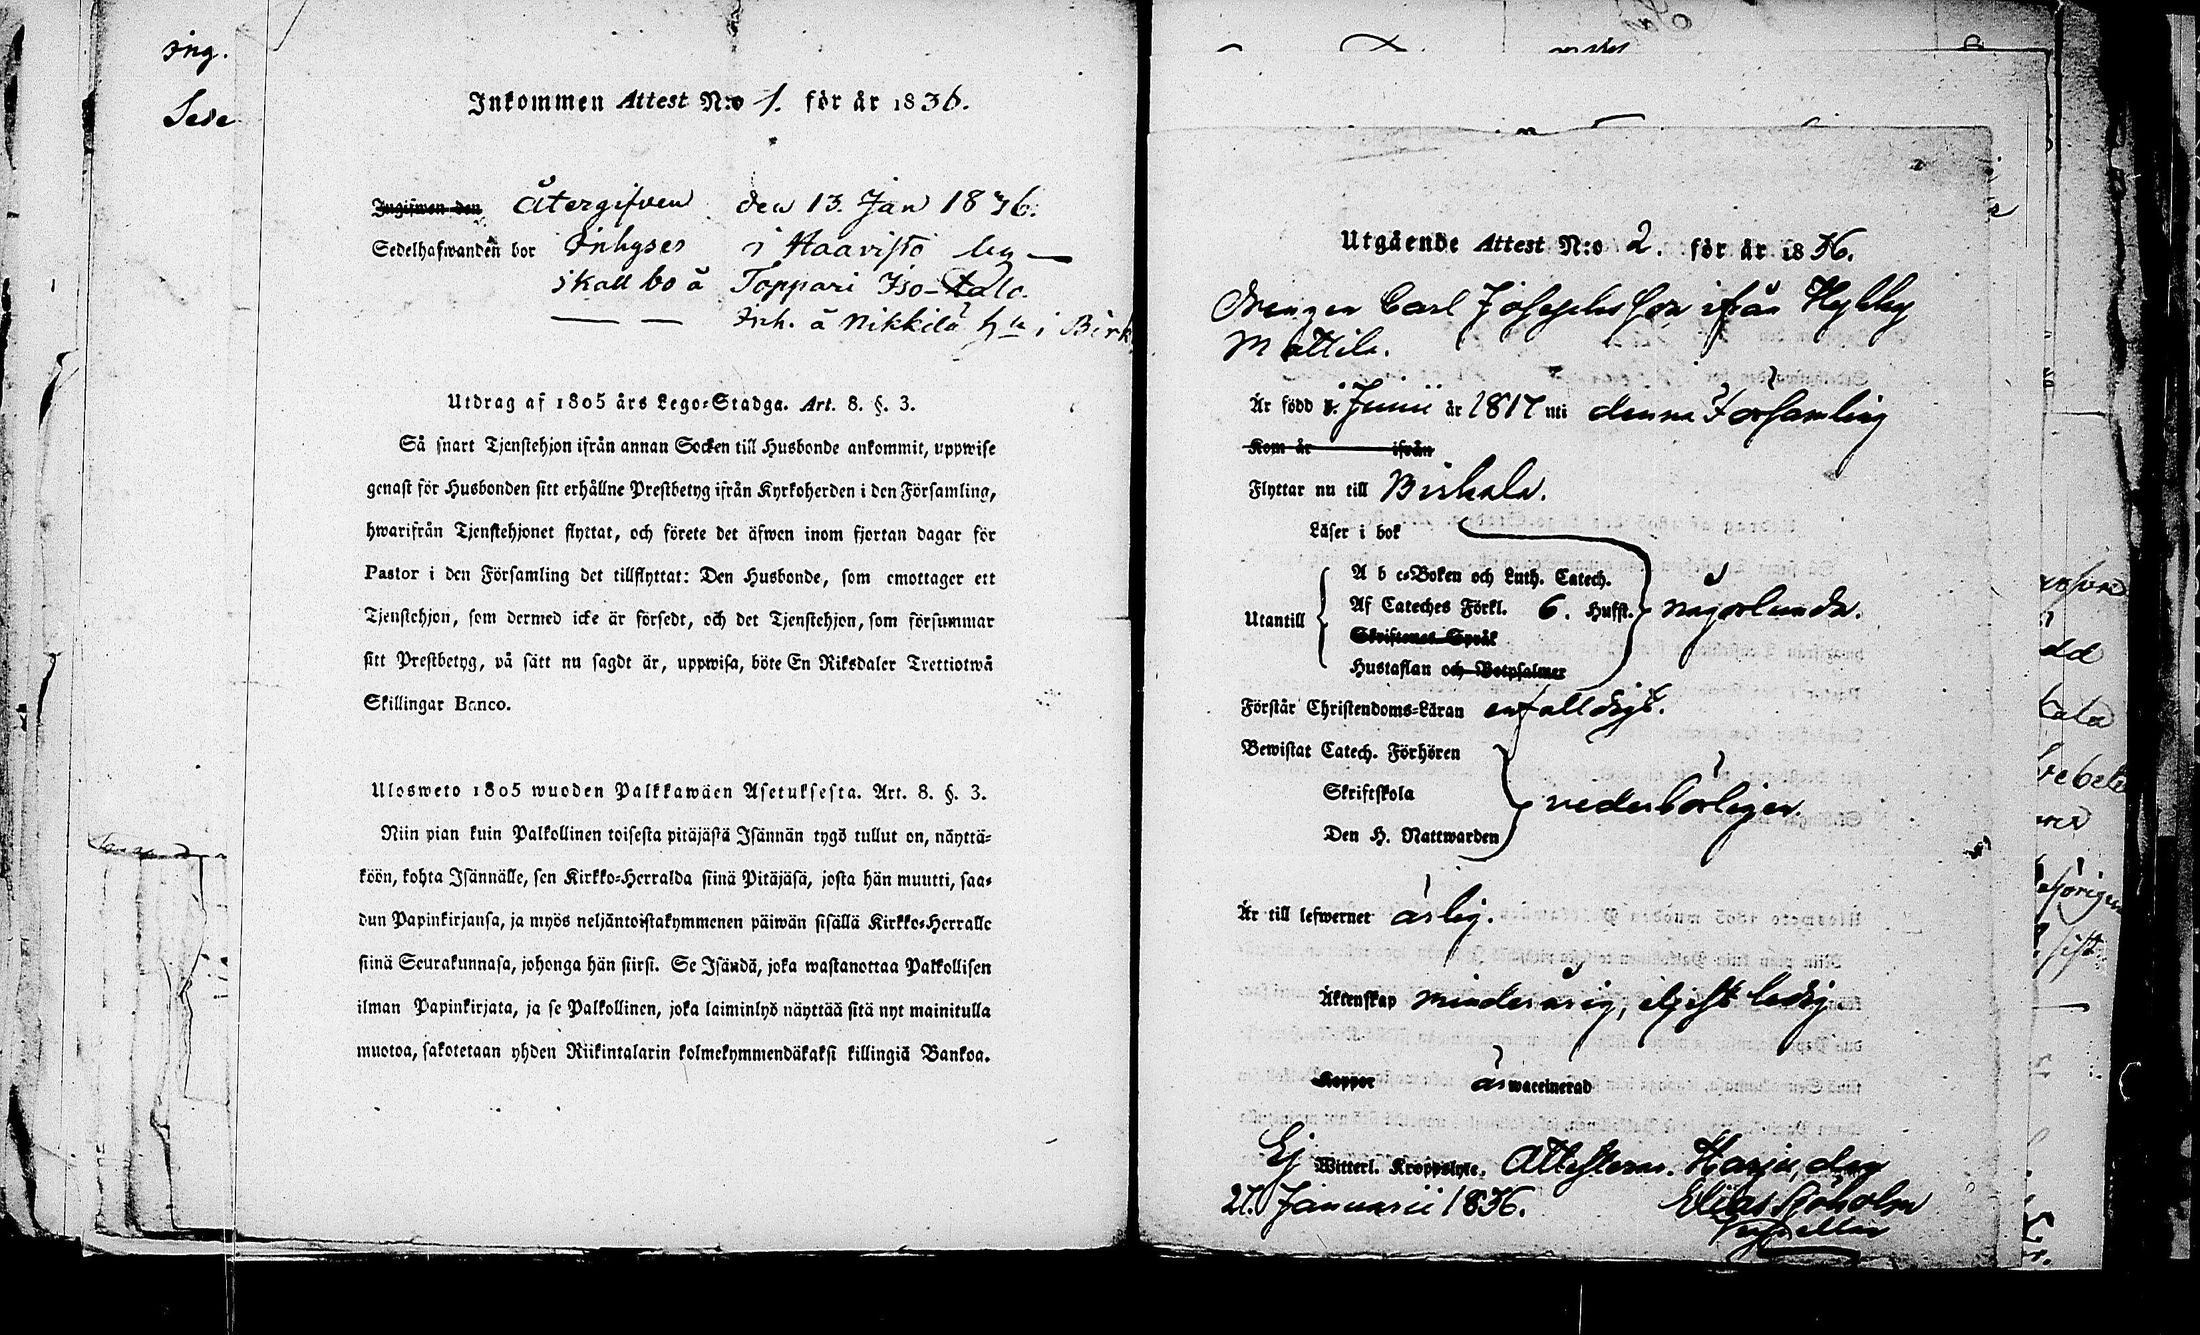 ing.
Sede
Inkommen Attest N:o 1. för år 1836.
Ingifwen den Återgifven den 13. Jan 1836.
Sedelhafwanden bor Inhyses i Haavisto by —
skall bo å Toppari Iso-talo.
— — Inh. å Nikkilä h i Birk
Utdrag af 1805 års Lego-Stadga. Art. 8. §. 3.
Så snart Tjenstehjon ifrån annan Socken till Husbonde ankommit, uppwise
genast för Husbonden sitt erhållne Prestbetyg ifrån Kyrkoherden i den Församling,
hwarifrån Tjenstehjonet flyttat, och förete det äfwen inom fjortan dagar för
Pastor i den Församling det tillflyttat: Den Husbonde, som emottager ett
Tjenstehjon, som dermed icke är försedt, och det Tjenstehjon, som försummar
sitt Prestbetyg, på sätt nu sagdt är, uppwisa, böte En Riksdaler Trettiotwå
Skillingar Banco.
Ulosweto 1805 wuoden Palkkawäen Asetuksesta. Art. 8. §. 3.
Niin pian kuin Palkollinen toisesta pitäjästä Isännän tygö tullut on, näyttä-
köön, kohta Isännälle, sen Kirkko-Herralda siinä Pitäjäsä, josta hän muutti, saa-
dun Papinkirjansa, ja myös neljäntoistakymmenen päiwän sisällä Kirkko-Herralle
siinä Seurakunnasa, johonga hän siirsi. Se Isändä, joka wastanottaa Palkollisen
ilman Papinkirjata, ja se Palkollinen, joka laiminlyö näyttää sitä nyt mainitulla
muotoa, sakotetaan yhden Riikintalarin kolmekymmendäkaksi killingiä Bankoa.
Utgående Attest N:o 2. för år 1836.
Drengen Carl Josephsson ifrån Hyhky
Mattila.
Är född i Junii år 1817 uti denna Församling
Kom år ifrån
Flyttar nu till Birkala.
Läser i bok
A b c-Boken och Luth. Catech.
Af Cateches Förkl. 6. Hufst. någorlunda.
Utantill
Skriftenes Språk
Hustaflan och Botpsalmer
Förstår Christendoms-Läran enfalldigt.
Bewistat Catech. Förhören
Skriftskola vederbörligen.
Den H. Nattwarden
Är till lefwernet ärlig.
Äktenskap minderårig, eljest ledig.
Koppor är waccinerad
Ej Witterl. Kroppslyte. Attesteras. Harju, den
21. Januarii 1836. Elias